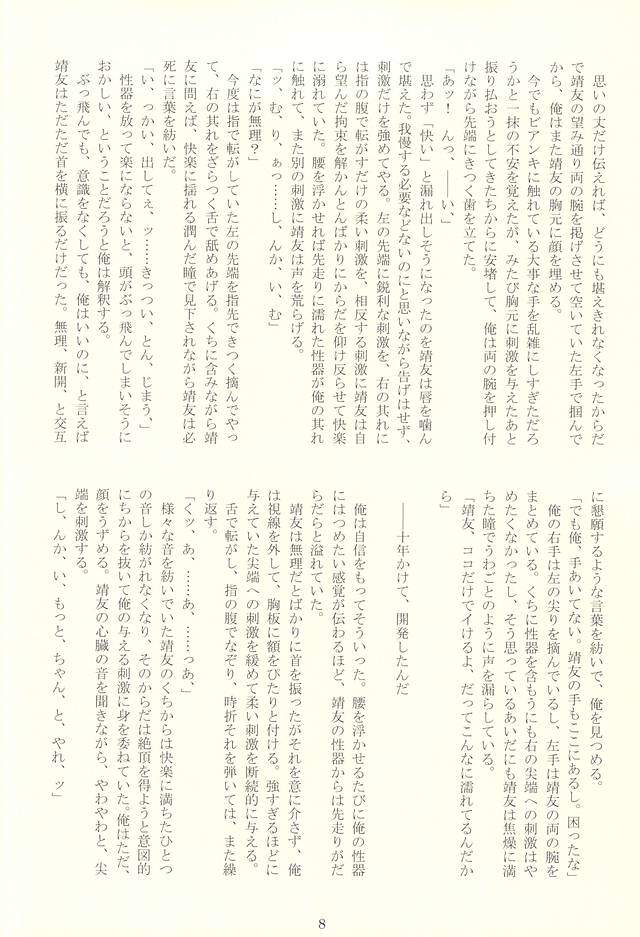 思いの丈だけ伝えれば、どうにも堪えきれなくなったからだ
で靖友の望み通り両の腕を掲げさせて空いていた左手で掴んで
から、俺はまた靖友の胸元に顔を埋める。
今でもビアンキに触れている大事な手を乱雑にしすぎただろ
うかと一抹の不安を覚えたが、みたび胸元に刺激を与えたあと
振り払おうとしてきたちからに安堵して、俺は両の腕を押し付
けながら先端にきつく歯を立てた。
「あッ！　んっ、――い、」
思わず「快い」と漏れ出しそうになったのを靖友は唇を噛ん
で堪えた。我慢する必要などないのにと思いながら告げはせず、
刺激だけを強めてやる。左の先端に鋭利な刺激を、右の其れに
は指の腹で転がすだけの柔い刺激を、相反する刺激に靖友は自
ら望んだ拘束を解かんとんばかりにからだを仰け反らせて快楽
に溺れていた。腰を浮かせれば先走りに濡れた性器が俺の其れ
に触れて、また別の刺激に靖友は声を荒らげる。
「ッ、む、り、ぁっ……し、んか、い、む」
「なにが無理？」
今度は指で転がしていた左の先端を指先できつく摘んでやっ
て、右の其れをざらつく舌で舐めあげる。くちに含みながら靖
友に問えば、快楽に揺れる潤んだ瞳で見下されながら靖友は必
死に言葉を紡いだ。
「い、っかい、出してぇ、ッ……きっつい、とん、じまう、」
性器を放って楽にならないと、頭がぶっ飛んでしまいそうに
おかしい、ということだろうと俺は解釈する。
ぶっ飛んでも、意識をなくしても、俺はいいのに、と言えば
靖友はただただ首を横に振るだけだった。無理、新開、と交互
に懇願するような言葉を紡いで、俺を見つめる。
「でも俺、手あいてない。靖友の手もここにあるし。困ったな」
俺の右手は左の尖りを摘んでいるし、左手は靖友の両の腕を
まとめている。くちに性器を含もうにも右の尖端への刺激はや
めたくなかったし、そう思っているあいだにも靖友は焦燥に満
ちた瞳でうわごとのように声を漏らしている。
「靖友、ココだけでイけるよ、だってこんなに濡れてるんだか
ら」

――十年かけて、開発したんだ

俺は自信をもってそういった。腰を浮かせるたびに俺の性器
にはつめたい感覚が伝わるほど、靖友の性器からは先走りがだ
らだらと溢れていた。
靖友は無理だとばかりに首を振ったがそれを意に介さず、俺
は視線を外して、胸板に額をぴたりと付ける。強すぎるほどに
与えていた尖端への刺激を緩めて柔い刺激を断続的に与える。
舌で転がし、指の腹でなぞり、時折それを弾いては、また繰
り返す。
「くッ、あ、……あ、……っあ、」
様々な音を紡いでいた靖友のくちからは快楽に満ちたひとつ
の音しか紡がれなくなり、そのからだは絶頂を得ようと意図的
にちからを抜いて俺の与える刺激に身を委ねていた。俺はただ、
顔をうずめる。靖友の心臓の音を聞きながら、やわやわと、尖
端を刺激する。
「し、んか、い、もっと、ちゃん、と、やれ、ッ」
8